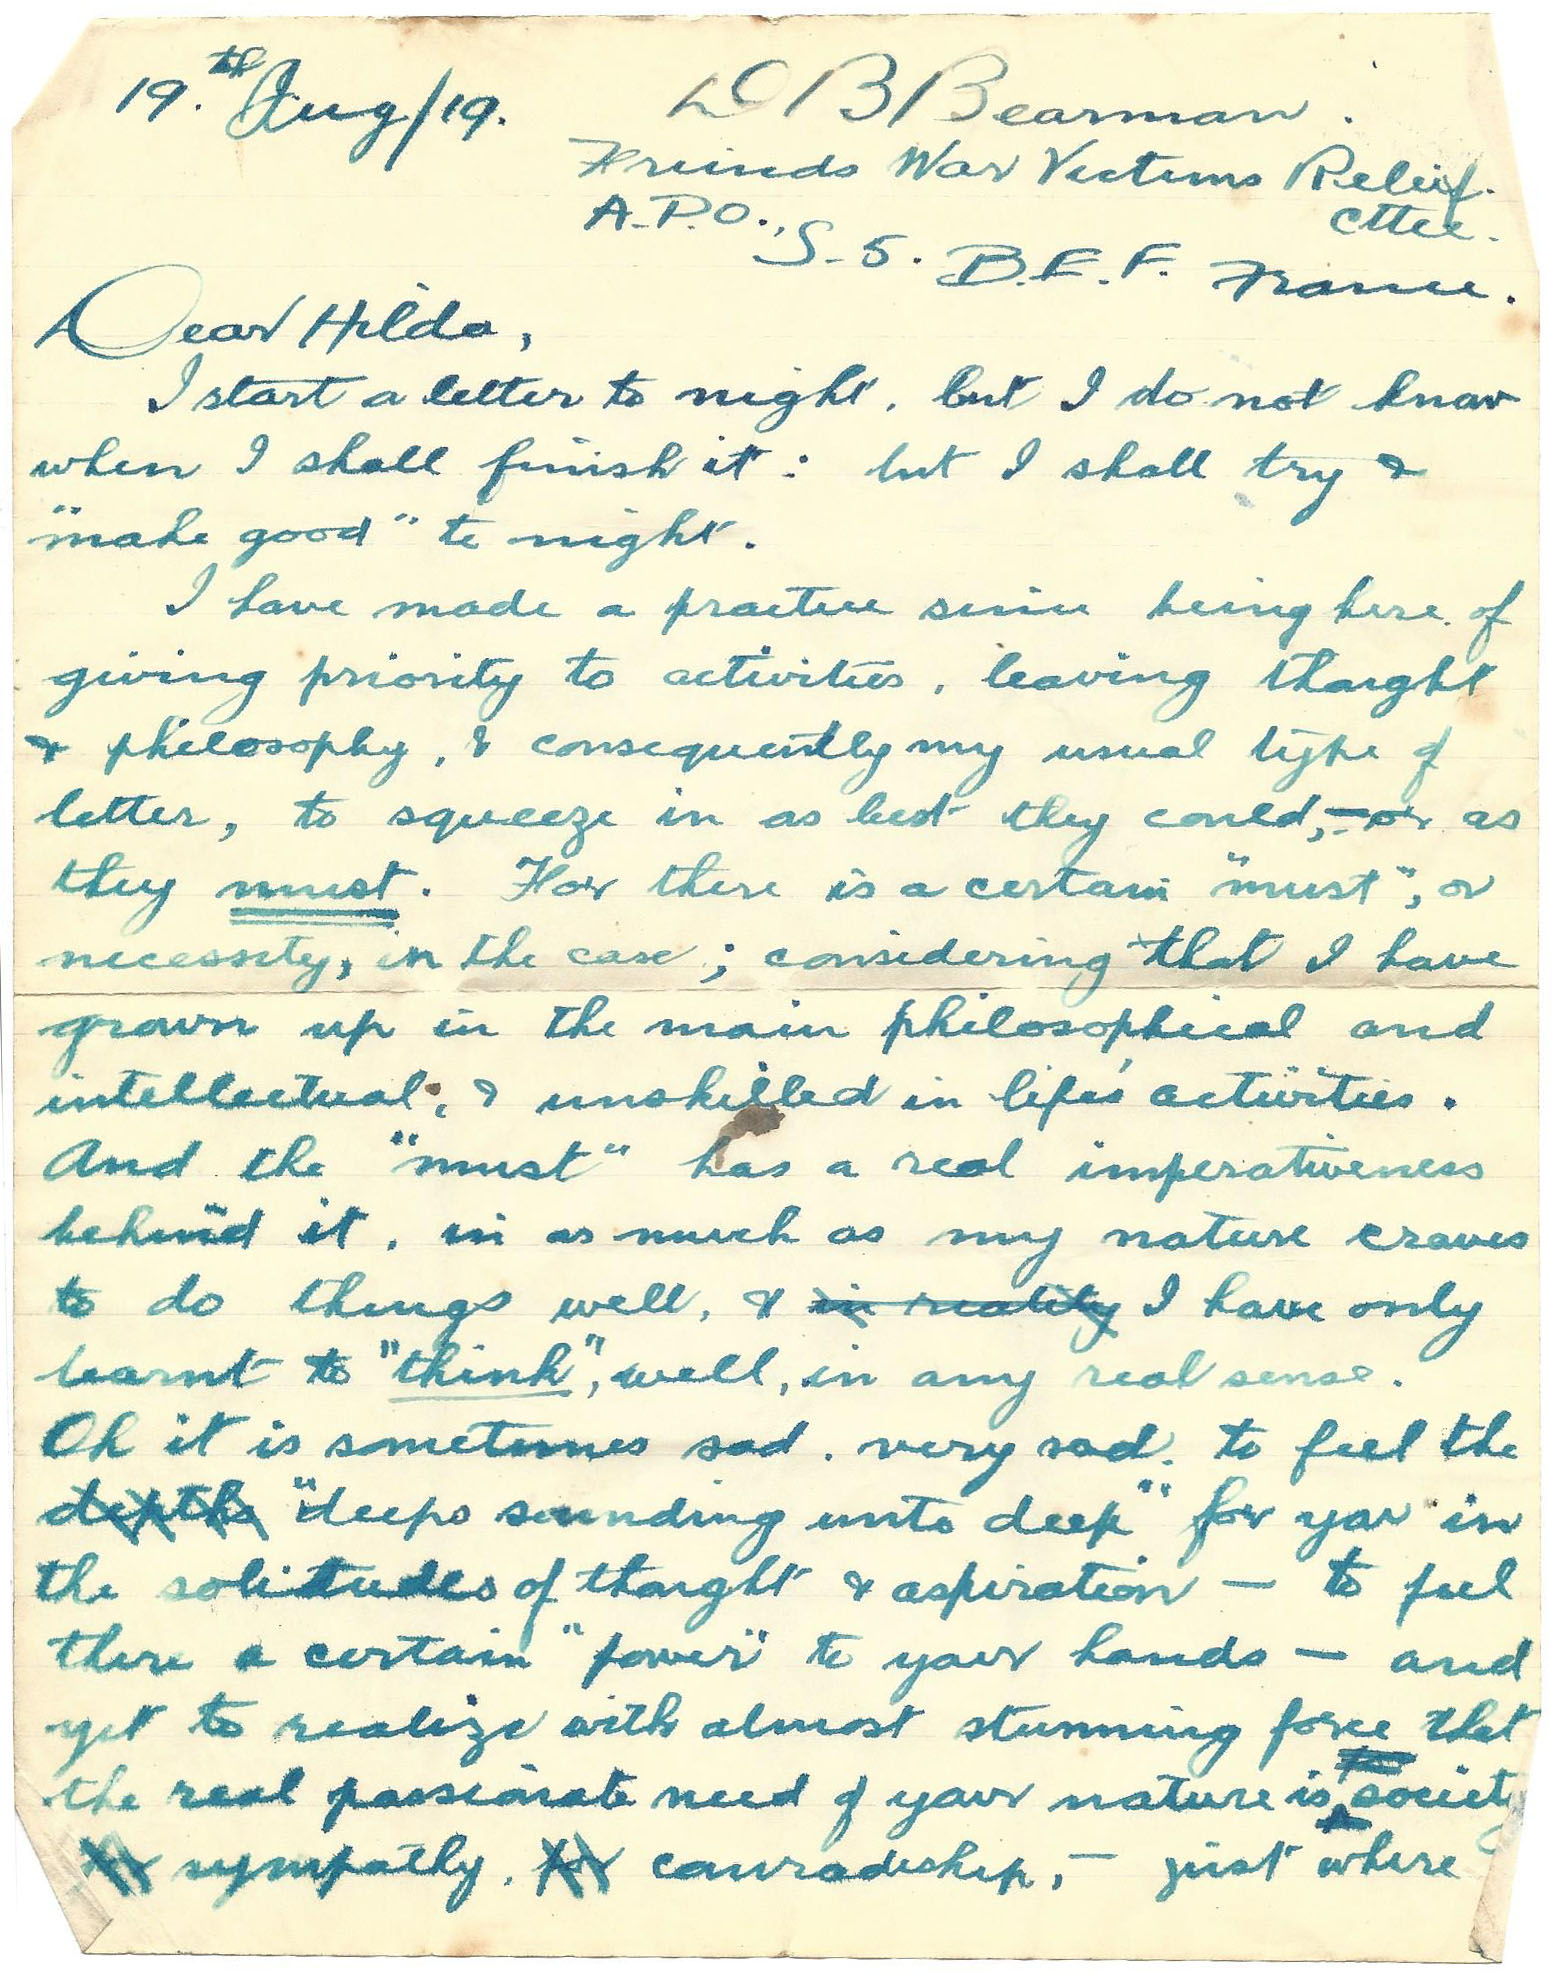 19.th Aug/19.
D B Bearman.
Friends War Victims Relief.
A.P.O., Cttee.
S-5. B.E.F. France.
Dear Hilda,
I start a letter to night, but I do not know
when I shall finish it: but I shall try &
"make good" to night.
I have made a practice since being here of
giving priority to activities, leaving thought
& philosophy, & consequently my usual type of
letter, to squeeze in as best they could, – or as
they must. For there is a certain "must", or
necessity, in the case; considering that I have
grown up in the main philosophical and
intellectual, & unskilled in life's activities.
And the "must" has a real imperativeness
behind it, in as much as my nature craves
to do things well, & in reality I have only
learnt to "think", well, in any real sense.
Oh it is sometimes sad, very sad, to feel the
depths "deeps sounding unto deep" for you in
the solitudes of thought & aspiration – to feel
there a certain "power" to your hands – and
yet to realize with almost stunning force that
the real passionate need of your nature is society
for sympathy, for comradeship, – just where